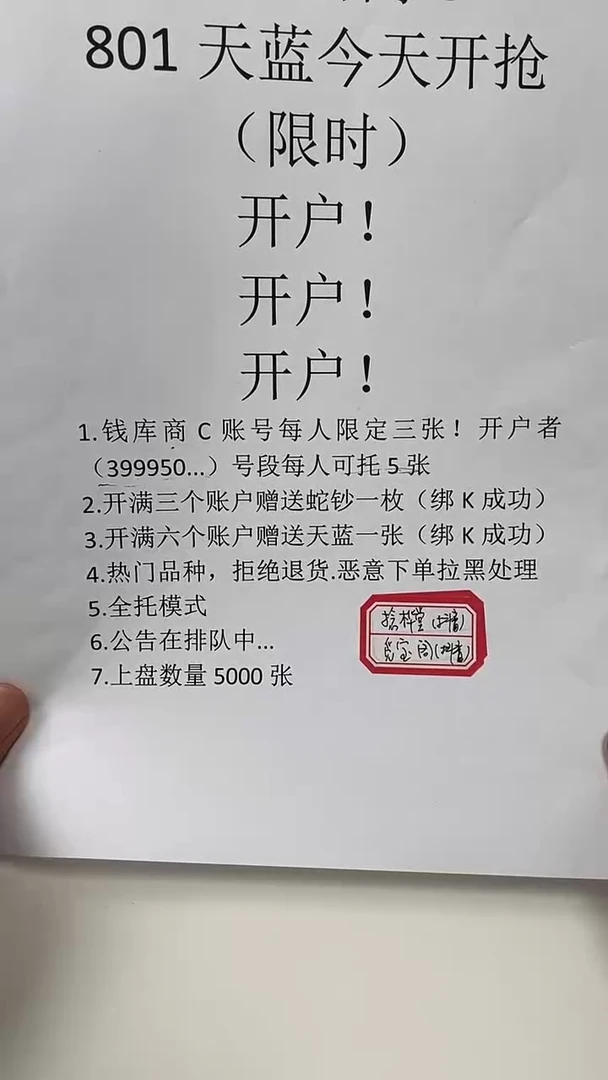 801 天蓝今天开抢
（限时）
开户！
开户！
开户！
1.钱库商 C 账号每人限定三张！开户者
（399950...）号段每人可托 5 张
2.开满三个账户赠送蛇钞一枚（绑 K 成功）
3.开满六个账户赠送天蓝一张（绑 K 成功）
4.热门品种，拒绝退货.恶意下单拉黑处理
5.全托模式
6.公告在排队中...
7.上盘数量 5000 张